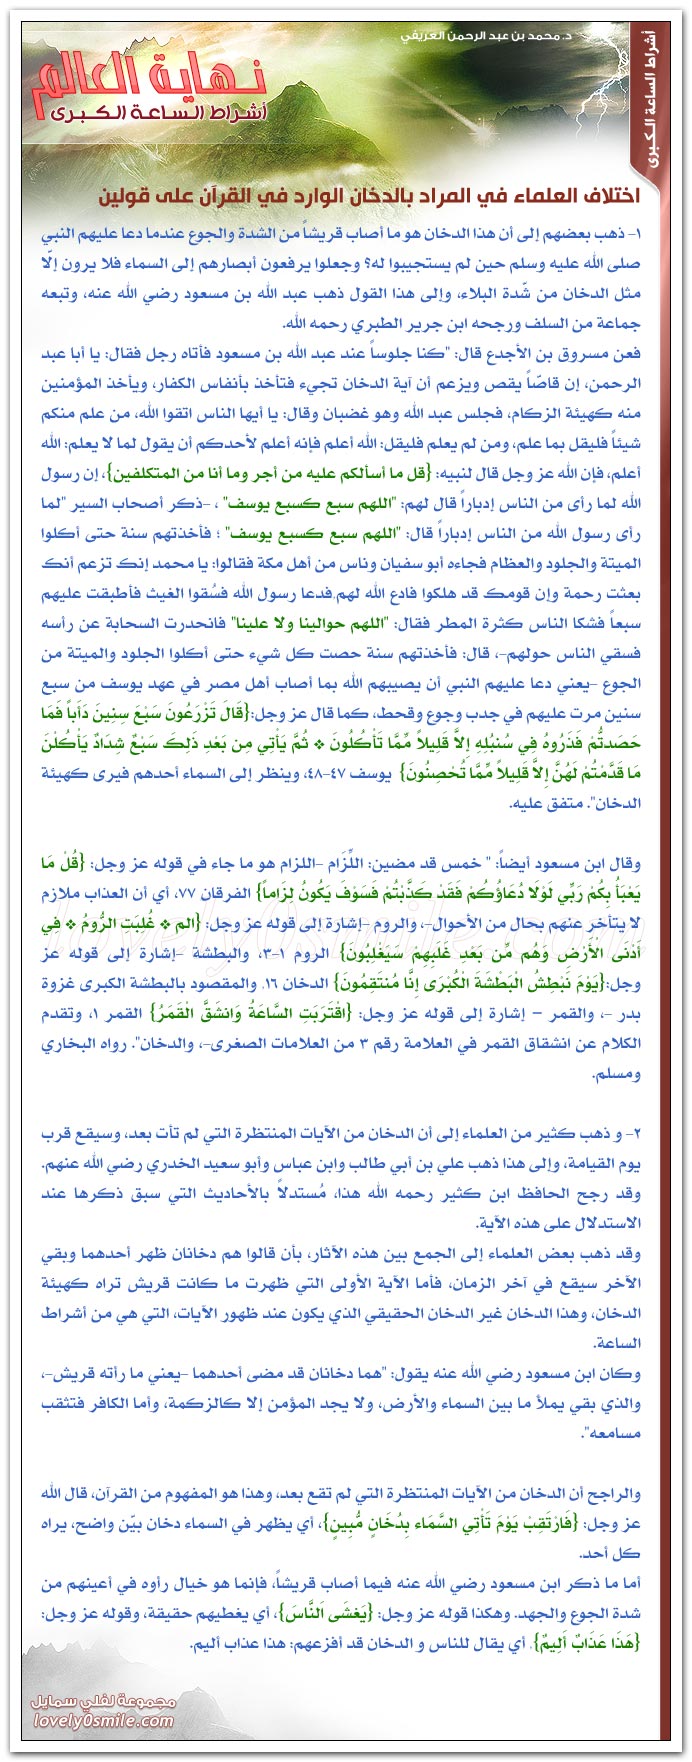 د. محمد بن عبد الرحمن العريفي
أشراط الساعة الكبرى
نهاية العالم
أشراط الساعة الكبرى
اختلاف العلماء في المراد بالدخان الوارد في القرآن على قولين
١- ذهب بعضهم إلى أن هذا الدخان هو ما أصاب قريشاً من الشدة والجوع عندما دعا عليهم النبي
صلى الله عليه وسلم حين لم يستجيبوا له؟ وجعلوا يرفعون أبصارهم إلى السماء فلا يرون إلّا
مثل الدخان من شّدة البلاء، وإلى هذا القول ذهب عبد الله بن مسعود رضي الله عنه، وتبعه
جماعة من السلف ورجحه ابن جرير الطبري رحمه الله.
فعن مسروق بن الأجدع قال: "كنا جلوساً عند عبد الله بن مسعود فأتاه رجل فقال: يا أبا عبد
الرحمن، إن قاصّاً يقص ويزعم أن آية الدخان تجيء فتأخذ بأنفاس الكفار، ويأخذ المؤمنين
منه كهيئة الزكام، فجلس عبد الله وهو غضبان وقال: يا أيها الناس اتقوا الله، من علم منكم
شيئاً فليقل بما علم، ومن لم يعلم فليقل: الله أعلم فإنه أعلم لأحدكم أن يقول لما لا يعلم: الله
أعلم، فإن الله عز وجل قال لنبيه: {قل ما أسألكم عليه من أجر وما أنا من المتكلفين}، إن رسول
الله لما رأى من الناس إدباراً قال لهم: "اللهم سبع كسبع يوسف" ، -ذكر أصحاب السير "لما
رأى رسول الله من الناس إدباراً قال: "اللهم سبع كسبع يوسف" ؛ فأخذتهم سنة حتى أكلوا
الميتة والجلود والعظام فجاءه أبو سفيان وناس من أهل مكة فقالوا: يا محمد إنك تزعم أنك
بعثت رحمة وإن قومك قد هلكوا فادع الله لهم،فدعا رسول الله فسُقوا الغيث فأطبقت عليهم
سبعاً فشكا الناس كثرة المطر فقال: "اللهم حوالينا ولا علينا" فانحدرت السحابة عن رأسه
فسقي الناس حولهم-، قال: فأخذتهم سنة حصت كل شيء حتى أكلوا الجلود والميتة من
الجوع -يعني دعا عليهم النبي أن يصيبهم الله بما أصاب أهل مصر في عهد يوسف من سبع
سنين مرت عليهم في جدب وجوع وقحط، كما قال عز وجل:{قَالَ تَزْرَعُونَ سَبْعَ سِنِينَ دَأَباً فَمَا
حَصَدتُّمْ فَذَرُوهُ فِي سُنبُلِهِ إِلاَّ قَلِيلاً مِّمَّا تَأْكُلُونَ ❖ ثُمَّ يَأْتِي مِن بَعْدِ ذَلِكَ سَبْعٌ شِدَادٌ يَأْكُلْنَ
مَا قَدَّمْتُمْ لَهُنَّ إِلاَّ قَلِيلاً مِّمَّا تُحْصِنُونَ} يوسف ٤٧-٤٨، وينظر إلى السماء أحدهم فيرى كهيئة
الدخان". متفق عليه.
وقال ابن مسعود أيضاً: " خمس قد مضين: اللِّزَام -اللزام هو ما جاء في قوله عز وجل: {قُلْ مَا
يَعْبَأُ بِكُمْ رَبِّي لَوْلَا دُعَاؤُكُمْ فَقَدْ كَذَّبْتُمْ فَسَوْفَ يَكُونُ لِزَاماً} الفرقان ٧٧، أي أن العذاب ملازم
لا يتأخر عنهم بحال من الأحوال-، والروم -إشارة إلى قوله عز وجل: {الم ❖ غُلِبَتِ الرُّومُ ❖ في
أَدْنَى الْأَرْضِ وَهُم مِّن بَعْدِ غَلَبِهِمْ سَيَغْلِبُونَ} الروم ١-٣، والبطشة -إشارة إلى قوله عز
وجل:{يَوْمَ نَبْطِشُ الْبَطْشَةَ الْكُبْرَى إِنَّا مُنتَقِمُونَ} الدخان ١٦. والمقصود بالبطشة الكبرى غزوة
بدر -، والقمر – إشارة إلى قوله عز وجل: {اقْتَرَبَتِ السَّاعَةُ وَانشَقَّ الْقَمَرُ} القمر ١، وتقدم
الكلام عن انشقاق القمر في العلامة رقم ٣ من العلامات الصغرى-، والدخان". رواه البخاري
ومسلم.
٢- و ذهب كثير من العلماء إلى أن الدخان من الآيات المنتظرة التي لم تأت بعد، وسيقع قرب
يوم القيامة، وإلى هذا ذهب علي بن أبي طالب وابن عباس وأبو سعيد الخدري رضي الله عنهم.
وقد رجح الحافظ ابن كثير رحمه الله هذا، مُستدلاً بالأحاديث التي سبق ذكرها عند
الاستدلال على هذه الآية.
وقد ذهب بعض العلماء إلى الجمع بين هذه الآثار، بأن قالوا هم دخانان ظهر أحدهما وبقي
الآخر سيقع في آخر الزمان، فأما الآية الأولى التي ظهرت ما كانت قريش تراه كهيئة
الدخان، وهذا الدخان غير الدخان الحقيقي الذي يكون عند ظهور الآيات، التي هي من أشراط
الساعة.
وكان ابن مسعود رضي الله عنه يقول: "هما دخانان قد مضى أحدهما -يعني ما رأته قريش-،
والذي بقي يملأ ما بين السماء والأرض، ولا يجد المؤمن إلا كالزكمة، وأما الكافر فتثقب
مسامعه".
والراجح أن الدخان من الآيات المنتظرة التي لم تقع بعد، وهذا هو المفهوم من القرآن، قال الله
عز وجل: {فَارْتَقِبْ يَوْمَ تَأْتِي السَّمَاء بِدُخَانٍ مُّبِينٍ}، أي يظهر في السماء دخان بيّن واضح، يراه
كل أحد.
أما ما ذكر ابن مسعود رضي الله عنه فيما أصاب قريشاً، فإنما هو خيال رأوه في أعينهم من
شدة الجوع والجهد. وهكذا قوله عز وجل: {يَغشَى النَّاسَ}، أي يغطيهم حقيقة، وقوله عز وجل:
{هَذَا عَذَابٌ أَلِيمٌ}. أي يقال للناس و الدخان قد أفزعهم: هذا عذاب أليم.
مجموعة لفلي سمايل
lovely0smile.com
lovely0smile.com